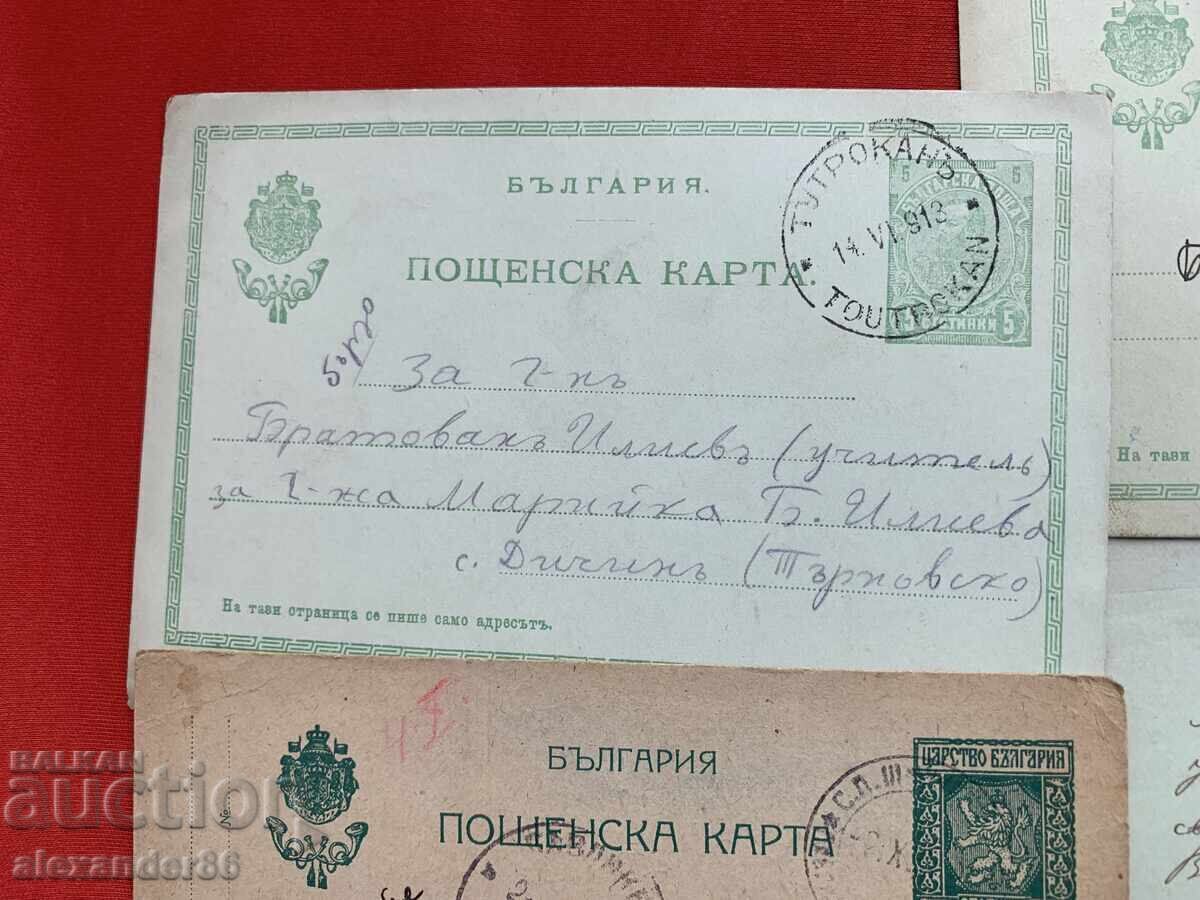 БЪЛГАРИЯ.
ПОЩЕНСКА КАРТА.
ТУТРОКАНЪ
14. VI. 913
TOUTROKAN
5 5
БЪЛГАРСКА ПОЩА
СТИНКИ 5
бързо
За г-нъ
Братованъ Илиевъ (учитель)
за г-жа Марийка Б. Илиева
с. Дичинъ (Търновско)
На тази страница се пише само адресътъ.
На тази
БЪЛГАРИЯ
ПОЩЕНСКА КАРТА
ЦАРСТВО БЪЛГАРИЯ
С.П.Ш
№
BALKAN
auction
alexander86